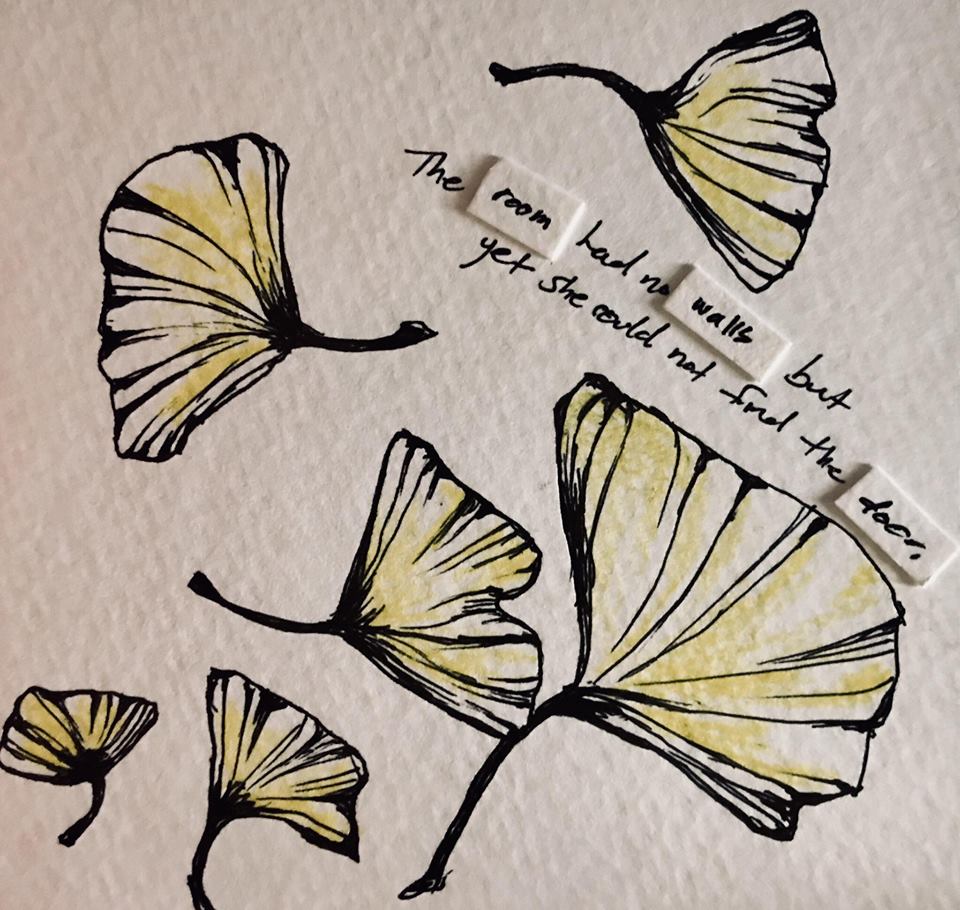 The room had no walls but
yet she could not find the door.